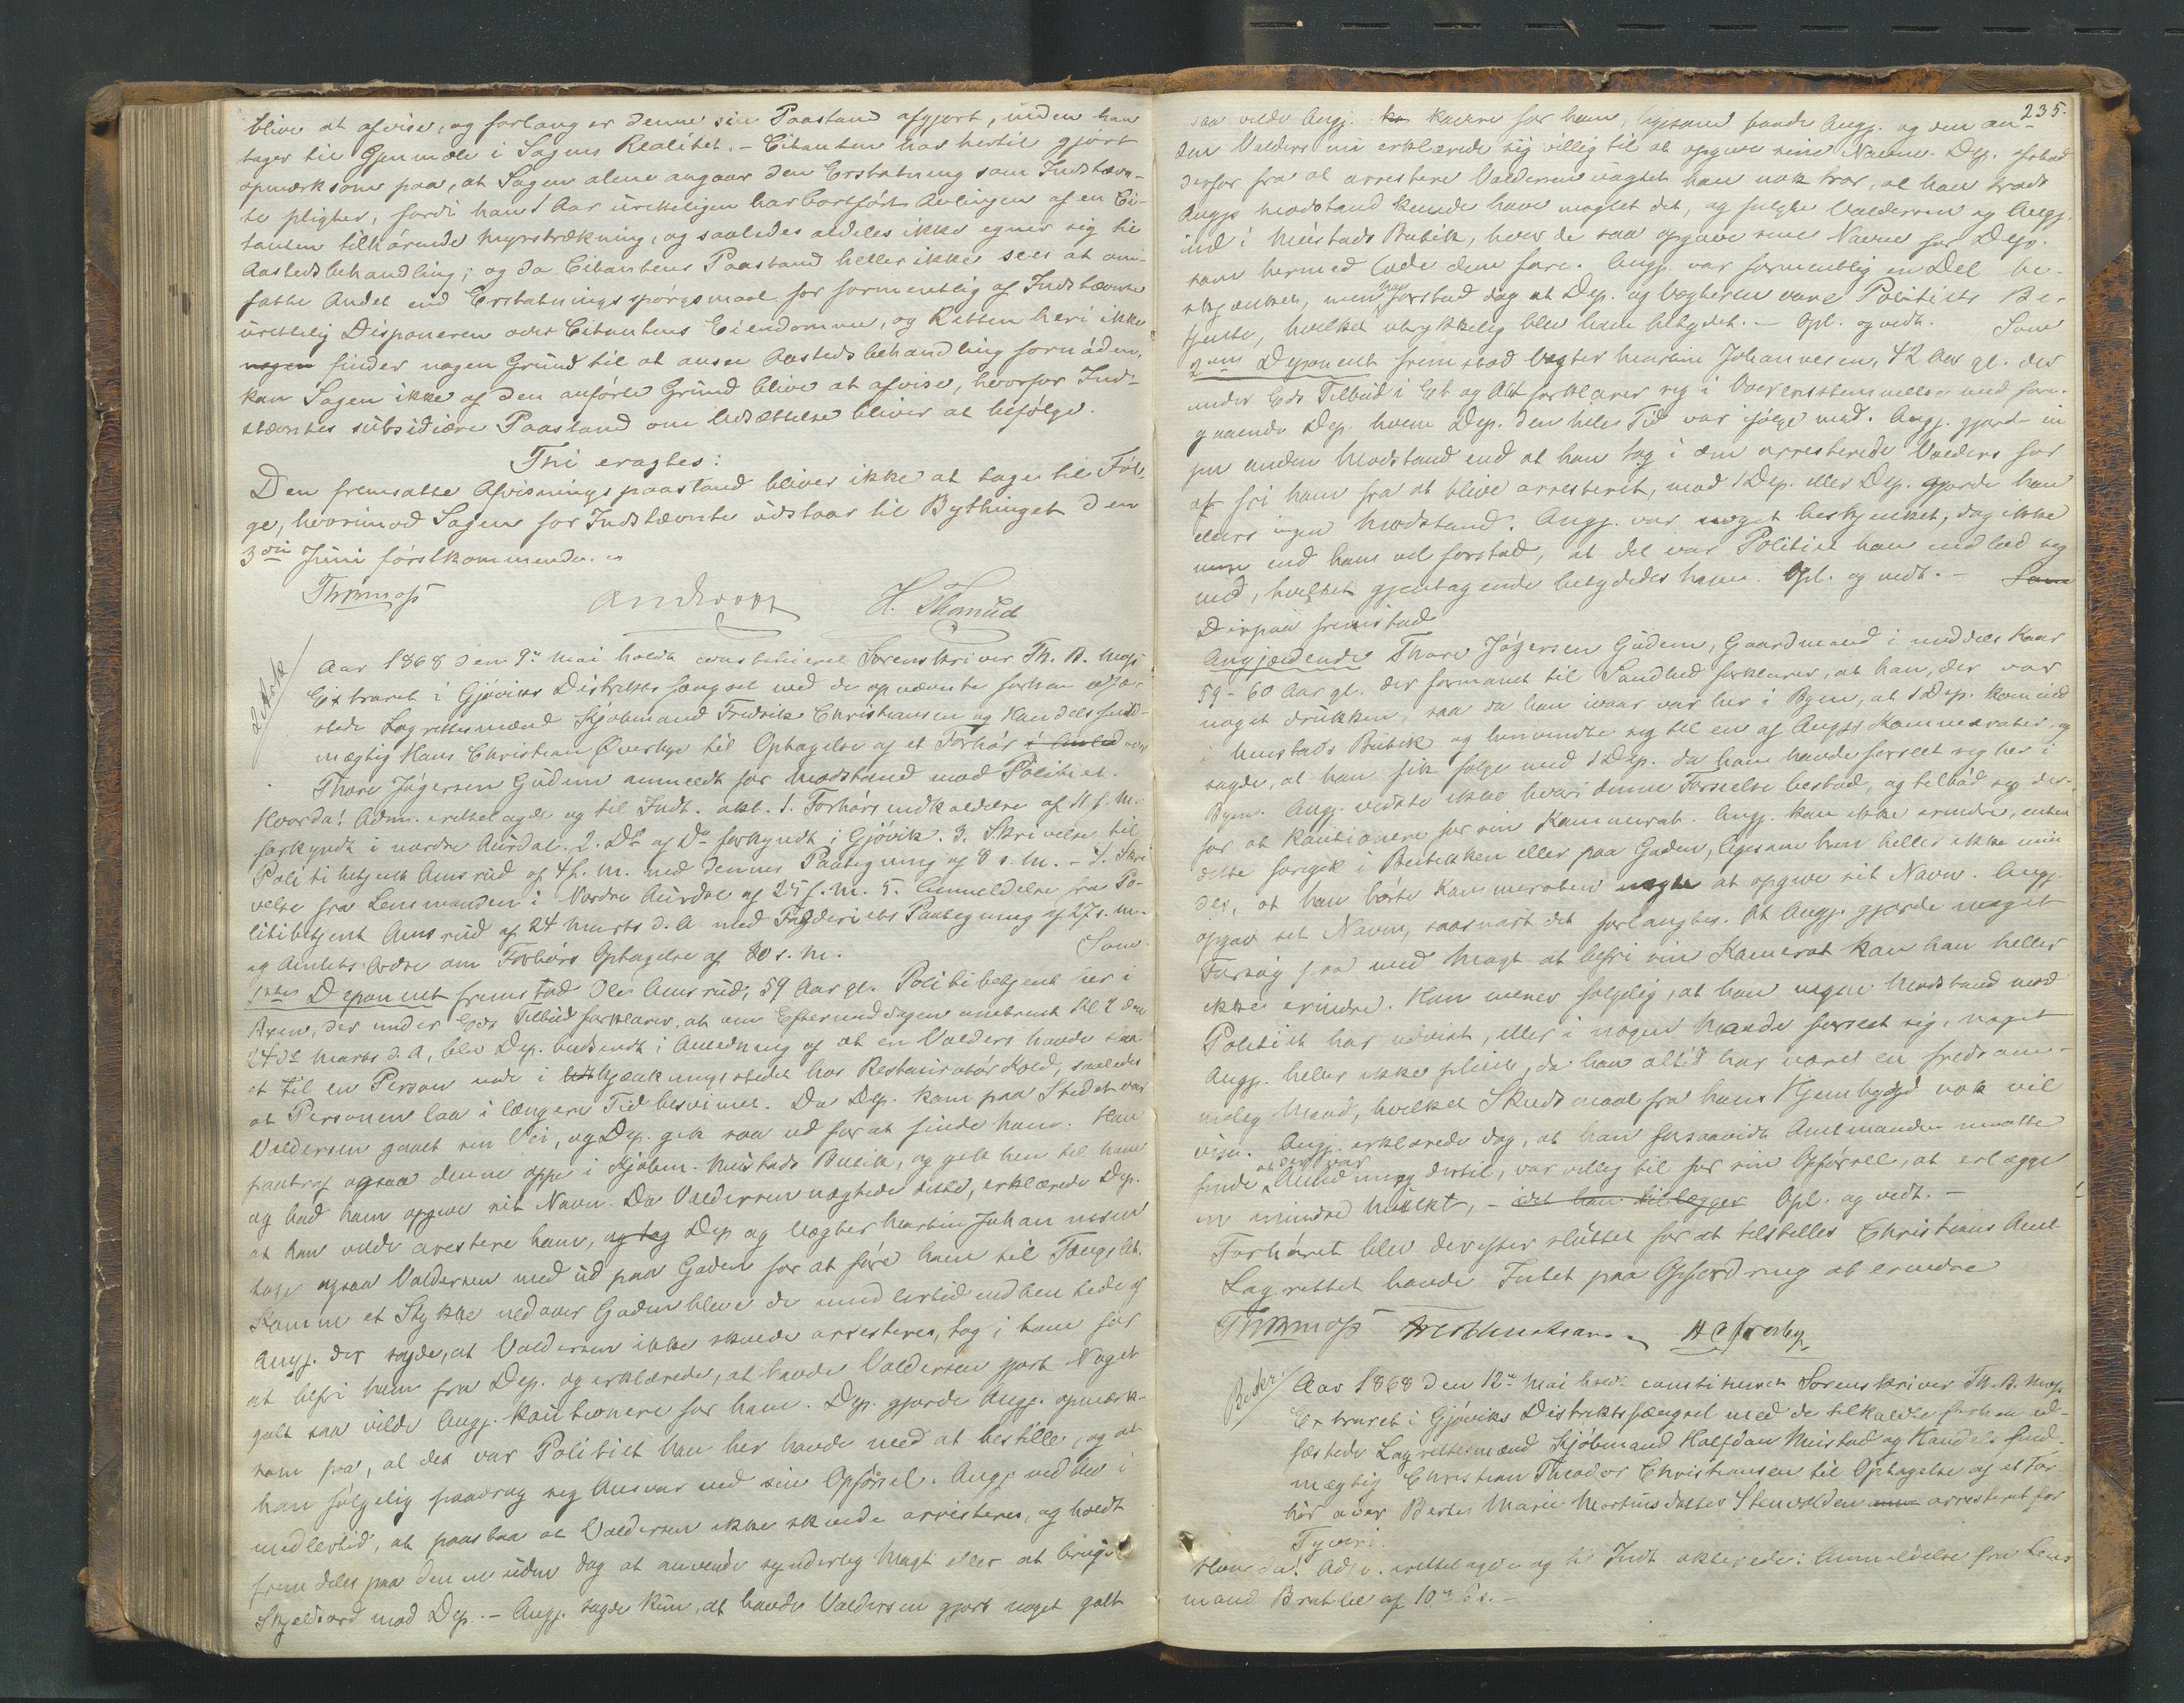 blive at afvise, og forlanger denne sin Paastand afgjort, inden han
tager til Gjenmæle i Sagens Realitet. – Citanten har hertil gjort
opmærksom paa, at Sagen alene angaar den Erstatning som Indstævn-
te pligter, fordi han i Aar uretteligen har bortført Avlingen af en Ci-
tanten tilhørende Myrstrækning, og saaledes aldeles ikke egner sig til
Aastedsbehandling; og da Citantens Paastand heller ikke sees at om-
fatte Andet end Erstatningsspørgsmaal for formentlig af Indstævnte
uretteligt Disponeren over Citantens Eiendomme, og Retten heri ikke
nogen finder nogen Grund til at anse Aastedsbehandling fornøden,
kan Sagen ikke af den anførte Grund blive at afvise, hvorfor Ind-
stævntes subsidiære Paastand om Udsættelse bliver at befølge.
Thi eragtes:
Den fremsatte Afvisningspaastand bliver ikke at tage til Føl-
ge, hvorimod Sagen for Indstævnte udstaar til Bythinget den
3die Juni førstkommende.
ThBMoss H. Thomüd
Aar 1868 den 9de Mai holdt constitueret Sorenskriver Th. B. Moss
Extraret i Gjøviks Distriktsfængsel med de opnævnte forhen edfæ-
stede Lagrettesmænd Kjøbmand Fredrik Christiansen og Handelsfuld-
mægtig Hans Christian Øverbye til Optagelse af et Forhør i Anled over
Thore Jøgersen Gudem anmeldt for Modstand mod Politiet.
Hvorda! Adm. rettelagde og til Indt. akt. 1. Forhørsindkaldelse af 11 f. M.
forkyndt i nordre Aurdal. 2. Do af Do forkyndt i Gjøvik. 3. Skrivelse til
Politibetjent Amsrud af 4 f. M. med dennes Paategning af 8 s. M. – 4. Skri
velse fra Lensmanden i Nordre Aurdal af 25 f. M. 5. Anmeldelse fra Po-
litibetjent Amsrud af 24 Marts d. A. med Fogderiets Paategning af 27 s. M.
og Amtets Ordre om Forhørs Optagelse af 30 s. M. Som
1ste Deponent fremstod Ole Amsrud, 59 Aar gl. Politibetjent her i
Byen, der under Eds Tilbud forklarer, at om Eftermiddagen omtrent Kl 2 den
24de Marts d. A, blev Dep. budsendt i Anledning af at en Valders havde slaa-
et til en Person nede i Skjænkningsstedet hos Restauratør Kold, saaledes
at Personen laa i længere Tid besvimet. Da Dep. kom paa Stedet var
Valdersen gaaet sin Vei, og Dep. gik saa ud for at finde ham. Han
paatraf ogsaa denne oppe i Kjøbm. Mustads Butik, og gik hen til ham
og bad ham opgive sit Navn. Da Valdersen nægtede dette, erklærede Dep.
at han vilde arrestere ham, og tog Dep og Vægter Martin Johannesen
toge ogsaa Valdersen med ud paa Gaden for at føre ham til Fængslet.
Komne et Stykke nedover Gaden bleve de imidlertid indhentede af
Angj. der sagde, at Valdersen ikke skulde arresteres, tog i ham for
at befri ham fra Dep. og erklærede, at havde Valdersen gjort Noget
galt saa vilde Angj. kautionere for ham. Dep. gjorde Angj. opmærk-
som paa, at det var Politiet han her havde med at bestille, og at
han følgelig paadrog sig Ansvar ved sin Opførsel. Angj. vedblev i
midlertid, at paastaa at Valdersen ikke skulde arresteres, og holdt
fremdeles paa denne uden dog at anvende synderlig Magt eller at bruge
Skjeldsord mod Dep. – Angj. sagde kun, at havde Valdersen gjort noget galt
235.
saa vilde Angj. ka kavere for ham, ligesom baade Angj. og den an-
den Valders nu erklærede sig villig til at opgive sine Navne. Dep. afstod
derfor fra at arrestere Valdersen uagtet han nok tror, at han trods
Angjs Modstand kunde have magtet det, og fulgte Valdersen og Angj.
ind i Mustads Butik, hvor de saa opgave sine Navne for Dep.
som hermed lode dem fare. Angj. var formentlig en Del be-
skjænket, men han forstod dog at Dep. og Vægteren vare Politiets Be-
tjente, hvilket udtrykkelig blev ham betydet. – Opl. og vedt. Som
2den Deponent fremstod Vægter Martin Johannesen, 42 Aar gl. der
under Eds Tilbud i Et og Alt forklarer sig i Overensstemmelse med fore-
gaaende Dep. hvem Dep. den hele Tid var ifølge med. Angj. gjorde in
gen anden Modstand end at han tog i den arresterede Valders for
at fri ham fra at blive arresteret, mod 1 Dep. eller Dep. gjorde han
ellers ingen Modstand. Angj. var noget beskjænket, dog ikke
mere end han vel forstod, at det var Politiet han indlod sig
med, hvilket gjentagende betydedes ham. Opl. og vedt. – Som
Derpaa fremstod
Angjældende Thore Jøgersen Gudem, Gaardmand i middels Kaar
59–60 Aar gl. der formanet til Sandhed forklarer, at han, der var
noget drukken, saa da han ivaar var her i Byen, at 1 Dep. kom ind
i Mustads Butik og henvendte sig til en af Angjs Kammerater og
sagde, at han fik følge med 1 Dep. da han havde forseet sig her i
Byen. Angj. vidste ikke hvori denne Forseelse bestod, og tilbød sig der-
for at kautionere for sin Kammerat. Angj. kan ikke erindre, enten
dette foregik i Butikken eller paa Gaden, ligesom han heller ikke min
des, at han hørte Kammeraten nægte at opgive sit Navn. Angj.
opgav sit Navn, saasnart det forlangtes. At Angj. gjorde noget
Forsøg paa med Magt at befri sin Kamerat kan han heller
ikke erindre. Han mener følgelig, at han nogen Modstand mod
Politiet har udvist, eller i nogen Maade forseet sig, noget
Angj. heller ikke pleier, da han altid har været en fredsom-
melig Mand, hvilket Skudsmaal fra hans Hjembygd nok vil
vise. Angj. erklærede dog, at han forsaavidt Amtmanden maatte
finde at der var Anledning dertil, var villig til for sin Opførsel, at erlægge
en mindre Mulkt, – idet han tillægger Opl. og vedt. –
Forhøret blev derefter sluttet for at tilstilles Christians Amt
Lagrettet havde Intet paa Opfordring at erindre
ThBMoss FredChristiansen HCØverby
Aar 1868 den 12te Mai holdt constitueret Sorenskriver Th. B. Moss
Extraret i Gjøviks Distriktsfængsel med de tilkaldte forhen ed-
fæstede Lagrettesmænd Kjøbmand Halfdan Mustad og Handelsfuld-
mægtig Christian Theodor Christiansen til Optagelse af et For
hør over Berthe Marie Mortinsdatter Stenvolden arresteret for
Tyveri.
Hvorda! Adm. rettelagde og til Indt. akterede: Anmeldelse fra Lens
mand Bratlie af 10de ds. –